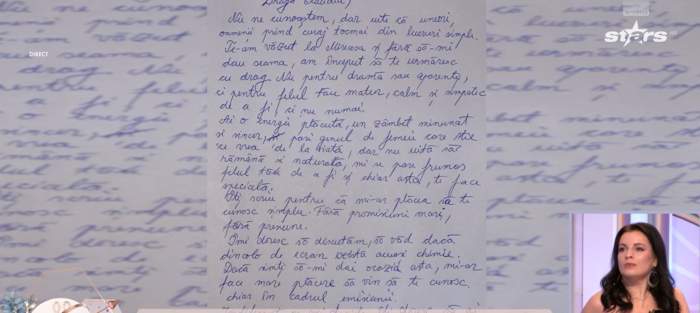 Dragă Claudia,
Nu ne cunoaștem, dar uite că uneori,
oamenii prind curaj tocmai din lucruri simple.
Te-am văzut la Mireasa și fără să-mi
dau seama, am început să te urmăresc
cu drag. Nu pentru dramă sau aparențe,
ci pentru felul tău matur, calm și simpatic
de a fi și nu numai.
Ai o energie plăcută, un zâmbet minunat
și sincer, pari genul de femeie care știe
ce vrea de la viață, dar nu uită să
rămână și naturală, mi se pare frumos
felul tău de a fi și chiar asta, te face
specială.
Îți scriu pentru că mi-ar plăcea să te
cunosc simplu. Fără promisiuni mari,
fără presiune.
Îmi doresc să discutăm, să văd dacă
dincolo de ecran există aceeași chimie.
Dacă simți să-mi dai ocazia asta, mi-ar
face mare plăcere să vin să te cunosc.
chiar în cadrul emisiunii.
DIRECT
antena
stars